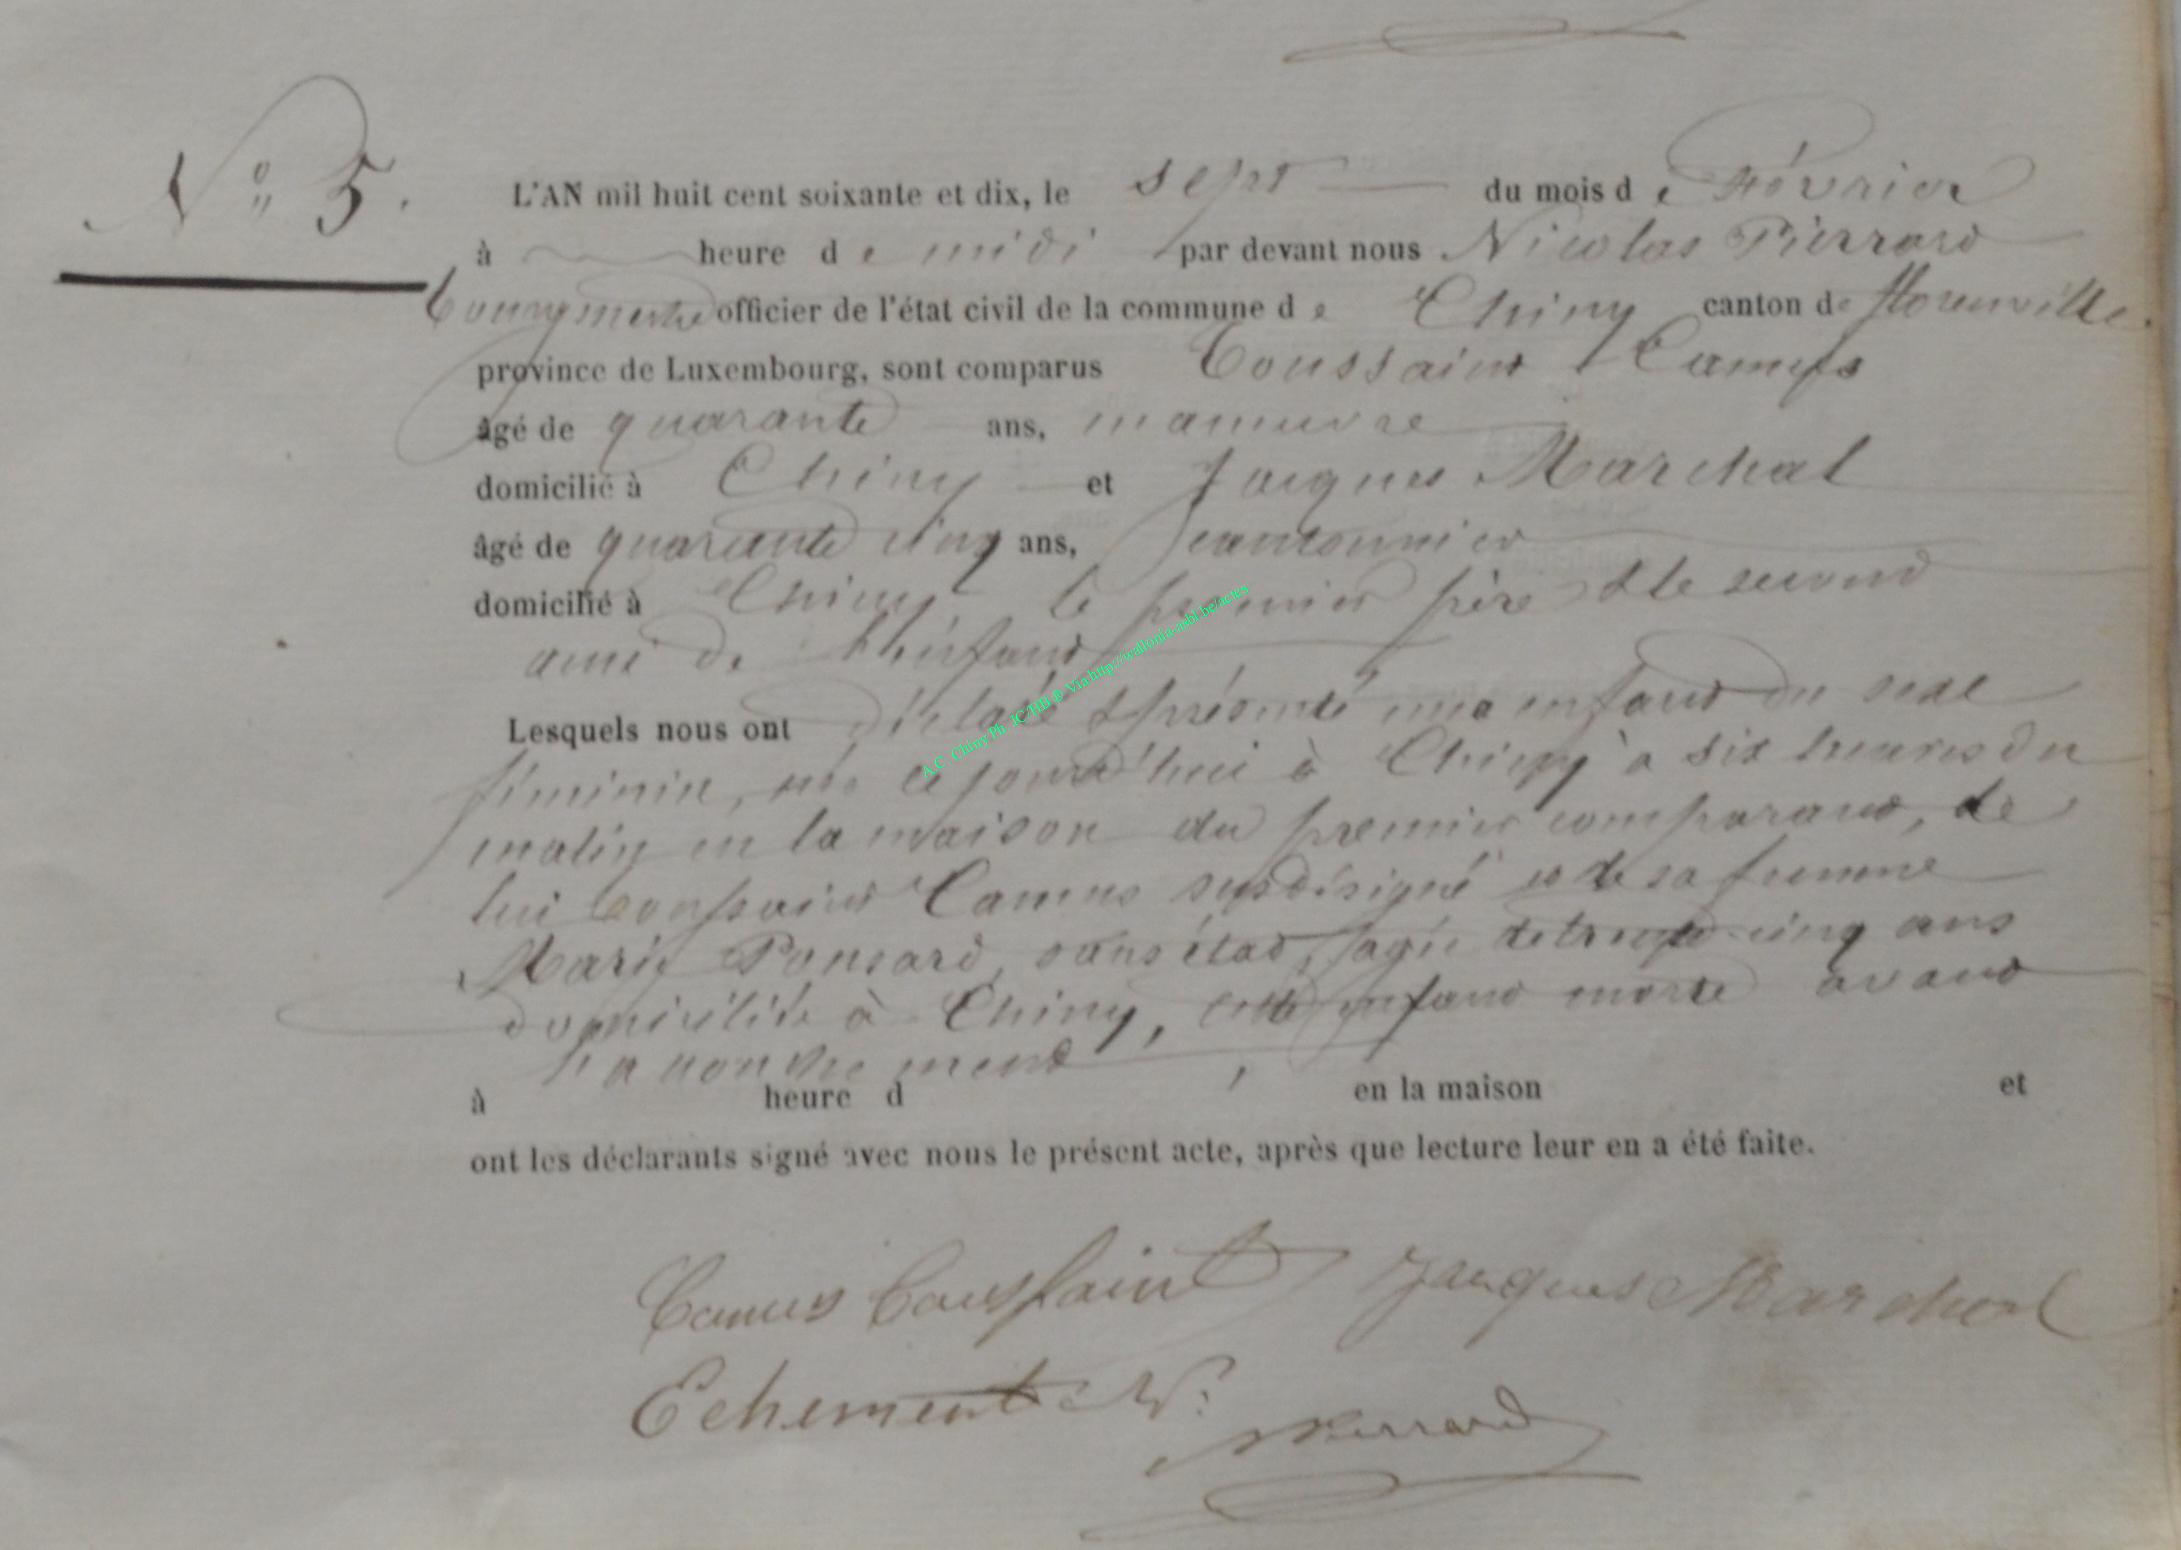 N° 5.
L'AN mil huit cent soixante et dix, le sept du mois de Février
à heure de midi par devant nous Nicolas Pierrard
bourgmestre officier de l'état civil de la commune de Chiny canton de florenville.
province de Luxembourg, sont comparus Toussaint Camus
âgé de quarante ans, manuvre
domicilié à Chiny et Jacques Marchal
âgé de quarante cinq ans, cantonnier
domicilié à Chiny le premier père & le second
ami de l'enfant
Lesquels nous ont déclaré & présenté une enfant du sexe
féminin, née ce jourd'hui à Chiny à six heures du
matin en la maison du premier comparant, de
lui Toussaint Camus susdésigné et de sa femme
Marie Ponsard, sans état, agée de trente-cinq ans
domiciliée à Chiny, cette enfant morte avant
à heure d , en la maison et
ont les déclarants signé avec nous le présent acte, après que lecture leur en a été faite.
Camus Toussaint Jacques Marchal
Echement N.
Pierrard
A.C. Chiny Ph. JC/HB © Via http://wallonia-asbl.be/actes